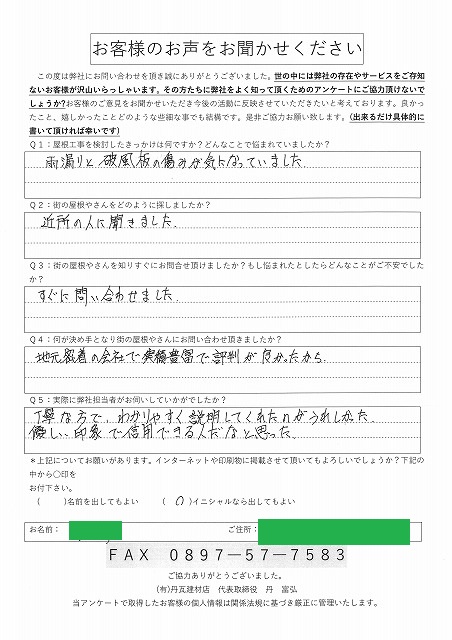 お客様のお声をお聞かせください
この度は弊社にお問い合わせを頂き誠にありがとうございました。世の中には弊社の存在やサービスをご存知
ないお客様が沢山いらっしゃいます。その方たちに弊社をよく知って頂くためのアンケートにご協力頂けないで
しょうか?お客様のご意見をお聞かせいただき今後の活動に反映させていただきたいと考えております。良かっ
たこと、嬉しかったことどのような些細な事でも結構です。是非ご協力お願い致します。(出来るだけ具体的に
書いて頂ければ幸いです)
Q1:屋根工事を検討したきっかけは何ですか?どんなことで悩まれていましたか?
雨漏りと破風板の傷みが気になっていました
Q2:街の屋根やさんをどのように探しましたか?
近所の人に聞きました.
Q3:街の屋根やさんを知りすぐにお問合せ頂けましたか?もし悩まれたとしたらどんなことがご不安でした
か?
すぐに問い合わせました.
Q4:何が決め手となり街の屋根やさんにお問い合わせ頂きましたか?
地元密着の会社で実績豊富で評判が良かったから.
Q5:実際に弊社担当者がお伺いしていかがでしたか?
丁寧な方で、わかりやすく説明してくれたのがうれしかった.
優しい印象で信用できる人だなと思った.
*上記についてお願いがあります。インターネットや印刷物に掲載させて頂いてもよろしいでしょうか?下記の
中から○印を
お付下さい。
( )名前を出してもよい (○)イニシャルなら出してもよい
お名前: ご住所:
FAX 0897-57-7583
ご協力ありがとうございました。
(有)丹瓦建材店 代表取締役 丹 富弘
当アンケートで取得したお客様の個人情報は関係法規に基づき厳正に管理いたします。